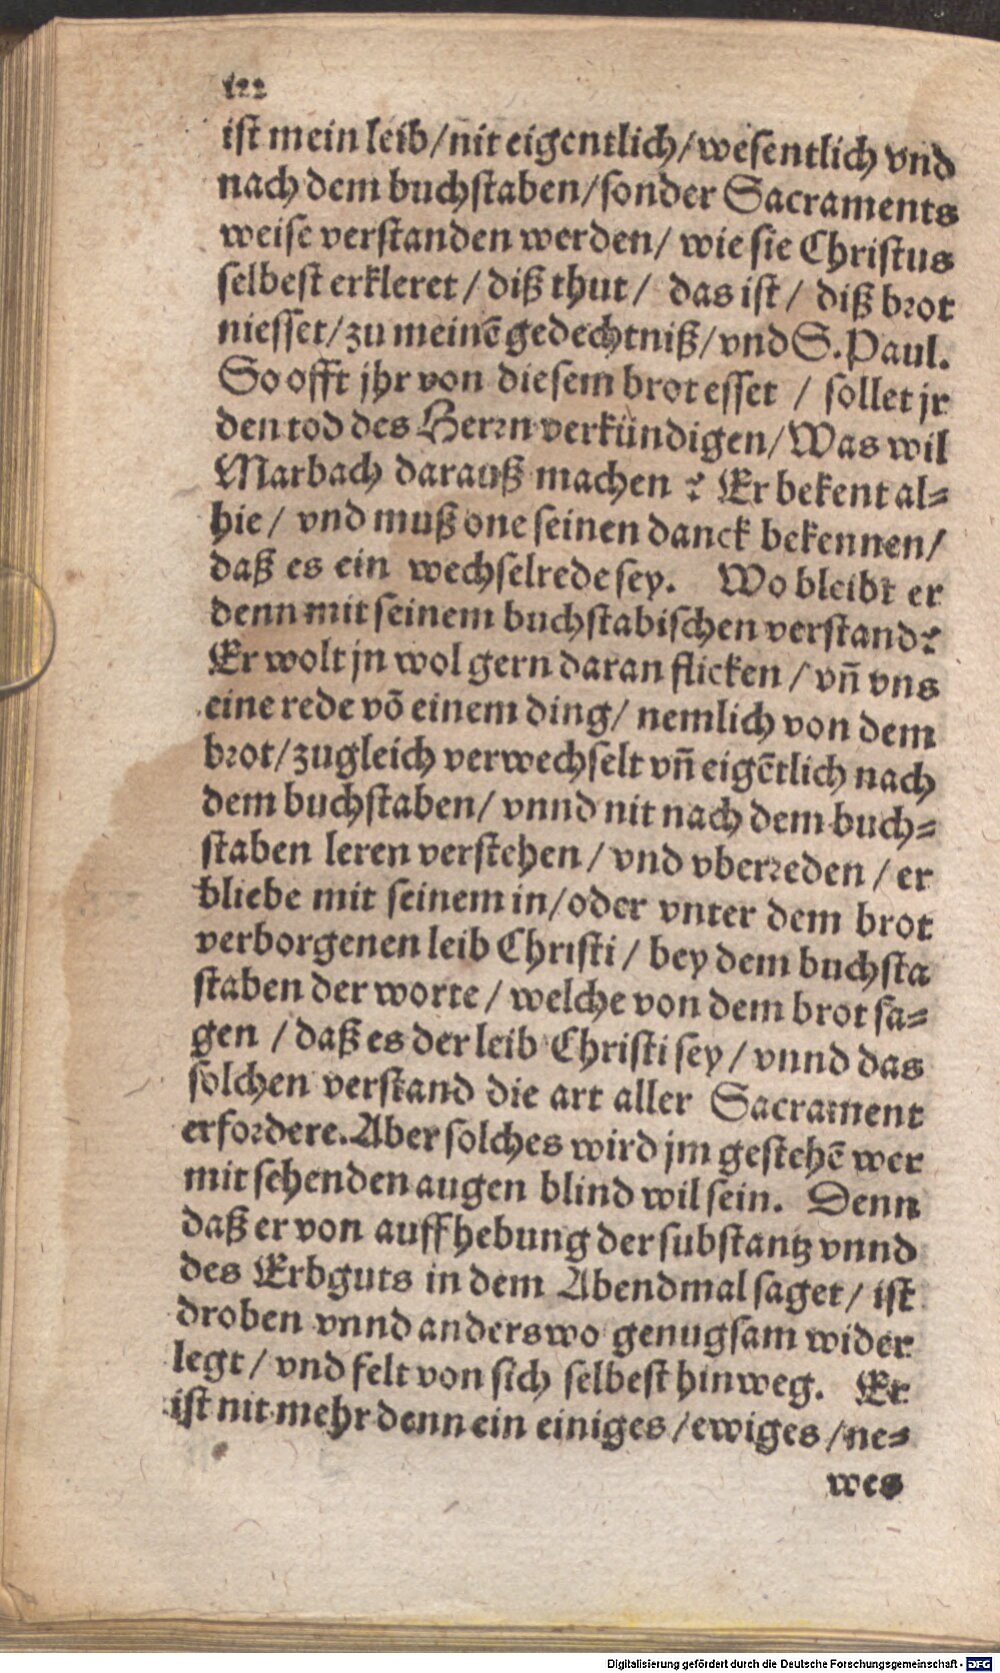 122
ist mein leib/nit eigentlich/wesentlich vnd
nach dem buchstaben/sonder Sacraments
weise verstanden werden/ wie sie Christus
selbest erkleret / diß thut / das ist / diß brot
niesset/zu meinē gedechtniß/vnd S. Paul.
So offt jhr von diesem brot esset / sollet jr
den tod des Herrn verkündigen/Was wil
Marbach darauß machen ? Er bekent al-
hie / vnd muß one seinen danck bekennen/
daß es ein wechselrede sey. Wo bleibt er
denn mit seinem buchstabischen verstand?
Er wolt jn wol gern daran flicken / vn̄ vns
eine rede vō einem ding/ nemlich von dem
brot/zugleich verwechselt vn̄ eigētlich nach
dem buchstaben/ vnnd nit nach dem buch-
staben leren verstehen / vnd vberreden / er
bliebe mit seinem in/oder vnter dem brot
verborgenen leib Christi / bey dem buchsta
staben der worte / welche von dem brot sa-
gen / daß es der leib Christi sey / vnnd das
solchen verstand die art aller Sacrament
erfordere. Aber solches wird jm gestehē wer
mit sehenden augen blind wil sein. Denn
daß er von auffhebung der substantz vnnd
des Erbguts in dem Abendmal saget/ ist
droben vnnd anderswo genugsam wider
legt / vnd felt von sich selbest hinweg. Er
ist nit mehr denn ein einiges /ewiges /ne-
wes
Digitalisierung gefördert durch die Deutsche Forschungsgemeinschaft - DFG